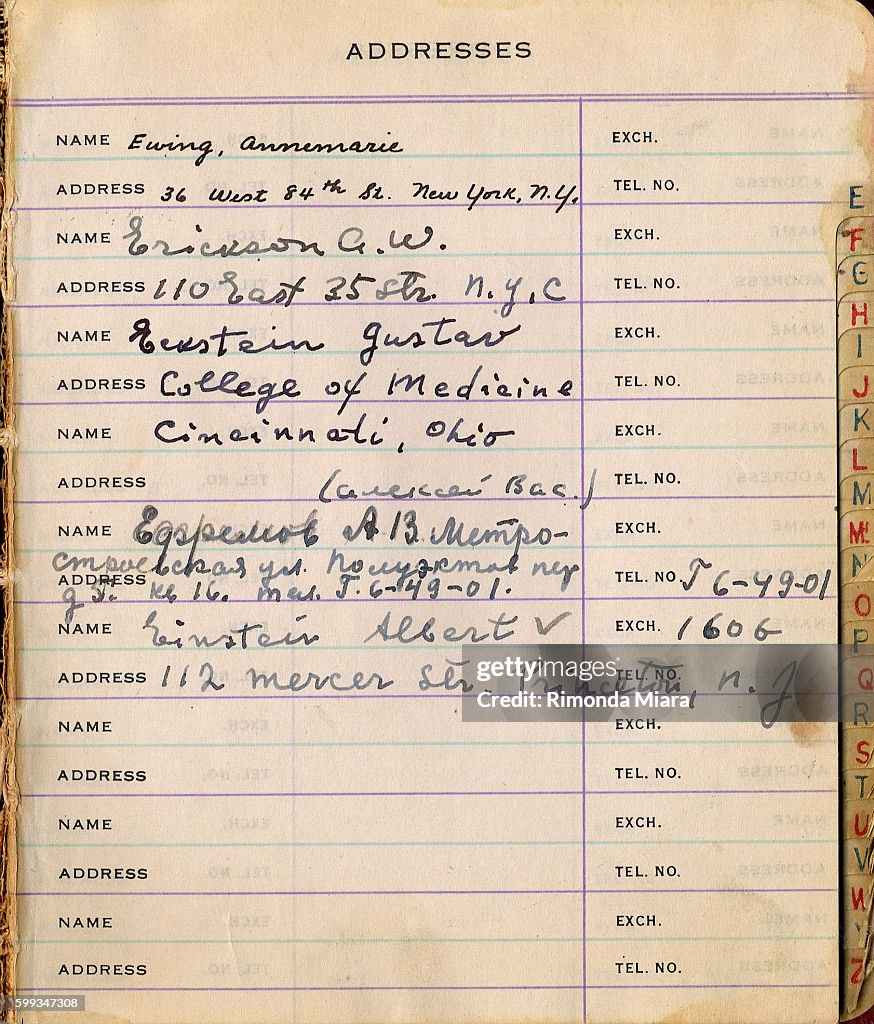 ADDRESSES
NAME Ewing, Annemarie EXCH.
ADDRESS 36 West 84th St. New York, N.Y. TEL. NO.
NAME Erickson A. W. EXCH.
ADDRESS 110 East 35 Str. N.Y.C TEL. NO.
NAME Eckstein Gustav EXCH.
ADDRESS College of Medicine TEL. NO.
NAME Cincinnati, Ohio EXCH.
ADDRESS (Алексей Вас.) TEL. NO.
NAME Ефремов А В. Метро- EXCH.
строевская ул. Полуэктов пер
ADDRESS TEL. NO. Г 6-49-01
д 5. кв 16. тел. Г. 6-49-01.
NAME Einstein Albert ✓ EXCH. 1606
ADDRESS 112 Mercer Str. Princeton, N. J TEL. NO.
NAME EXCH.
ADDRESS TEL. NO.
NAME EXCH.
ADDRESS TEL. NO.
NAME EXCH.
ADDRESS TEL. NO.
E
F
G
H
I
J
K
L
M
Mc
N
O
P
Q
R
S
T
U
V
W
Y
Z
gettyimages
Rimonda Miara
599347308